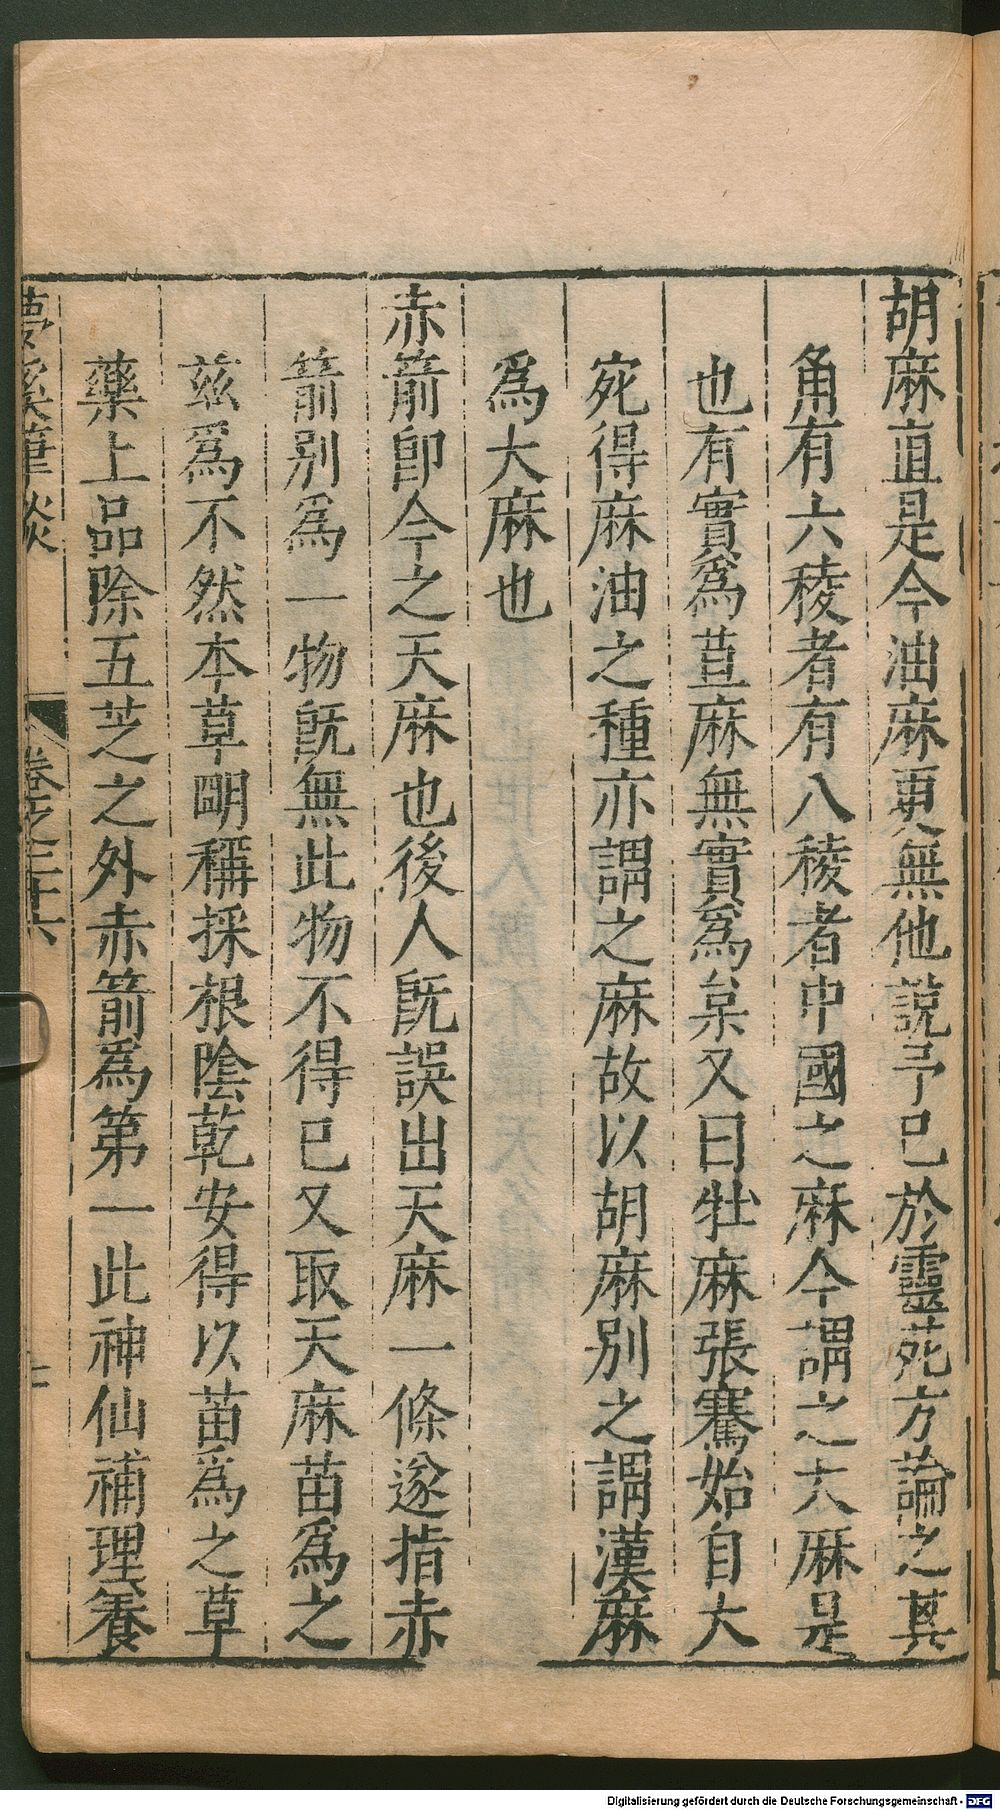 胡麻直是今油麻更無他說予已於靈苑方論之其
角有六稜者有八稜者中國之麻今謂之大麻是
也有實爲苴麻無實爲枲又曰牡麻張騫始自大
宛得麻油之種亦謂之麻故以胡麻別之謂漢麻
爲大麻也
赤箭卽今之天麻也後人旣誤出天麻一條遂指赤
箭别爲一物旣無此物不得已又取天麻苗爲之
兹爲不然本草明稱採根陰乾安得以苗爲之草
藥上品除五芝之外赤箭爲第一此神仙補理養
夢溪筆談 卷之二十六 十一
Digitalisierung gefördert durch die Deutsche Forschungsgemeinschaft - DFG